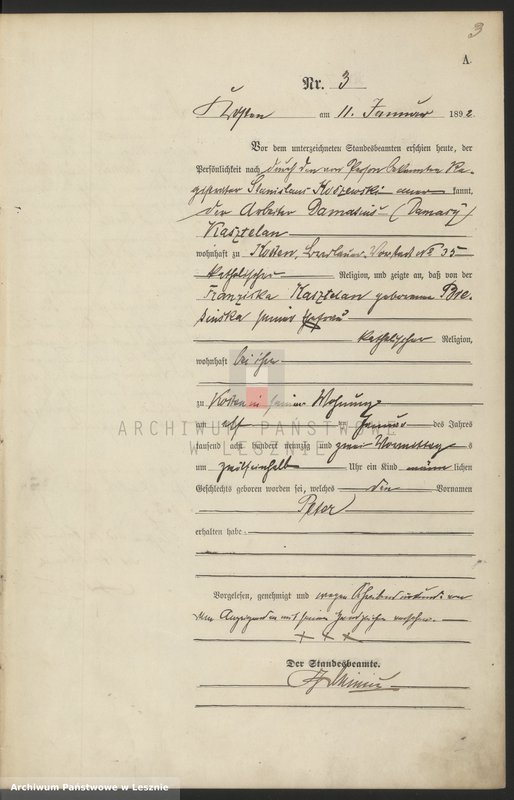 3
A.
Nr. 3
Kosten am 11. Januar 1892
Vor dem unterzeichneten Standesbeamten erschien heute, der
Persönlichkeit nach durch den von Person bekannten Re-
gistrator Stanislaus Koszewski aner kannt,
der Arbeiter Damasius (Damazy)
Kasztelan
wohnhaft zu Kosten, Breslauer Vorstadt No 35
katholischer Religion, und zeigte an, daß von der
Franziska Kasztelan geborenen Bre-
sinska seiner Ehefrau
katholischer Religion,
wohnhaft bei ihm
zu Kosten in seiner Wohnung
ARCHIWUM PAŃSTWOWE
W LESZNIE
am elf ten Januar des Jahres
tausend acht hundert neunzig und zwei Vormittag s
um Uhr ein Kind männ lichen
Geschlechts geboren worden sei, welches den Vornamen
Peter
erhalten habe.
Vorgelesen, genehmigt und wegen Schreibensunkunde von
dem Anzeigenden mit seinem Handzeichen versehen.
+ + +
Der Standesbeamte.
Archiwum Państwowe w Lesznie